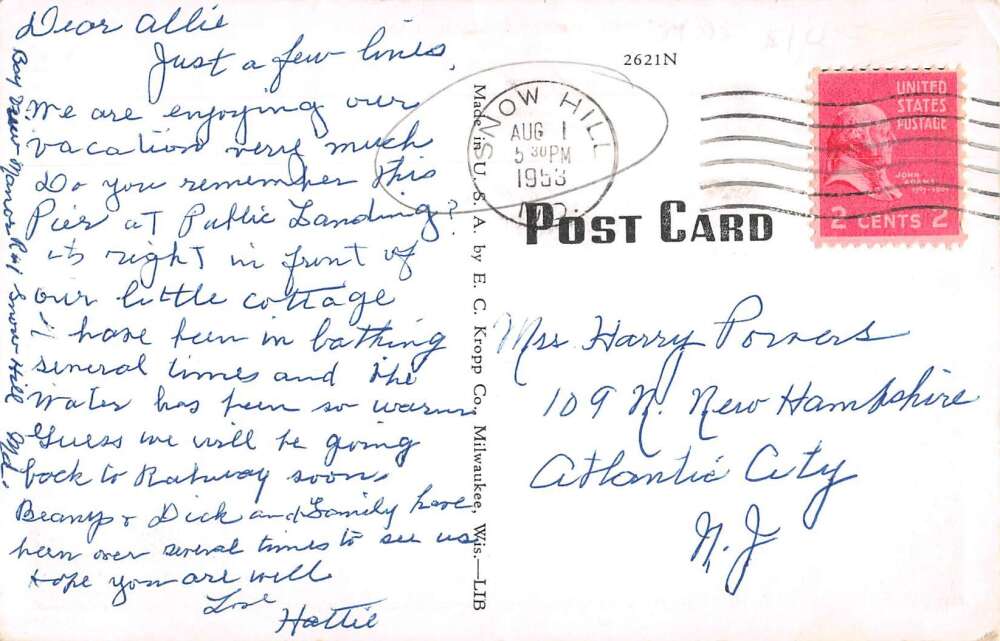 Dear Allie
Just a few lines,
We are enjoying our
vacation very much
Do you remember this
Pier at Public Landing?
its right in front of
our little cottage
I have been in bathing
several times and the
water has been so warm,
Guess we will be going
back to Rahway soon.
Beany & Dick and family have
been over several times to see us
Hope you are well
Love
Hattie
Bay View Manor Snow Hill Md.
Made in U. S. A. by E. C. Kropp Co., Milwaukee, Wis.—LIB
2621N
SNOW HILL
AUG 1
5 30 PM
1953
MD.
UNITED
STATES
POSTAGE
JOHN
ADAMS
2 CENTS 2
POST CARD
Mrs Harry Powers
109 N. New Hampshire
Atlantic City
N. J